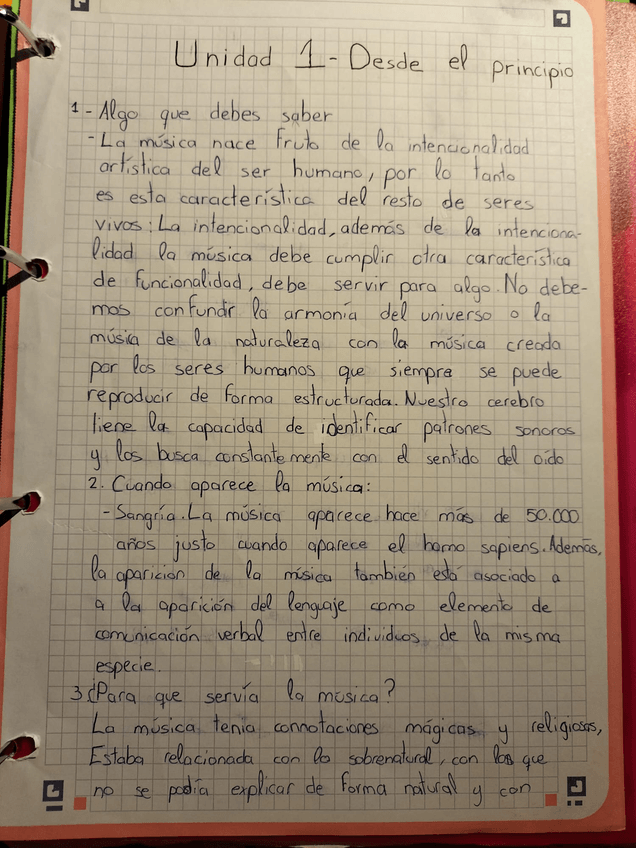 Unidad 1 - Desde el principio
1 - Algo que debes saber
- La música nace fruto de la intencionalidad
artística del ser humano, por lo tanto
es esta característica del resto de seres
vivos: La intencionalidad, además de la intenciona-
lidad la música debe cumplir otra característica
de funcionalidad, debe servir para algo. No debe-
mos confundir la armonía del universo o la
música de la naturaleza con la música creada
por los seres humanos que siempre se puede
reproducir de forma estructurada. Nuestro cerebro
tiene la capacidad de identificar patrones sonoros
y los busca constantemente con el sentido del oído
2. Cuando aparece la música:
- Sangría. La música aparece hace más de 50.000
años justo cuando aparece el homo sapiens. Además,
la aparición de la música también está asociado a
a la aparición del lenguaje como elemento de
comunicación verbal entre individuos de la misma
especie.
3 ¿Para que servía la musica?
La música tenia connotaciones mágicas y religiosas,
Estaba relacionada con lo sobrenatural, con los que
no se podía explicar de forma natural y con